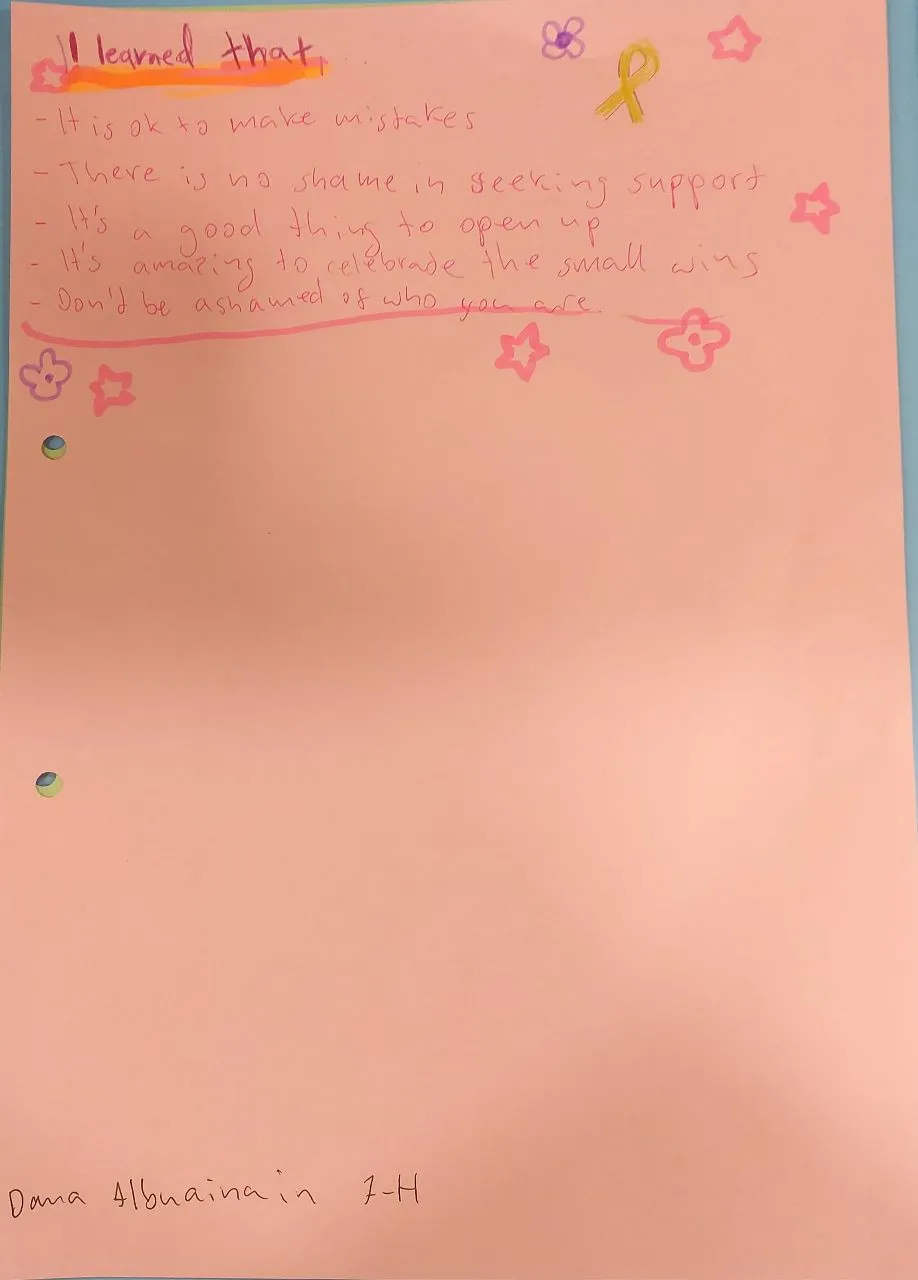 I learned that...
- It is ok to make mistakes
- There is no shame in seeking support
- It's a good thing to open up
- It's amazing to celebrade the small wins
- Don't be ashamed of who you are.
Dana Albuainain 7-H